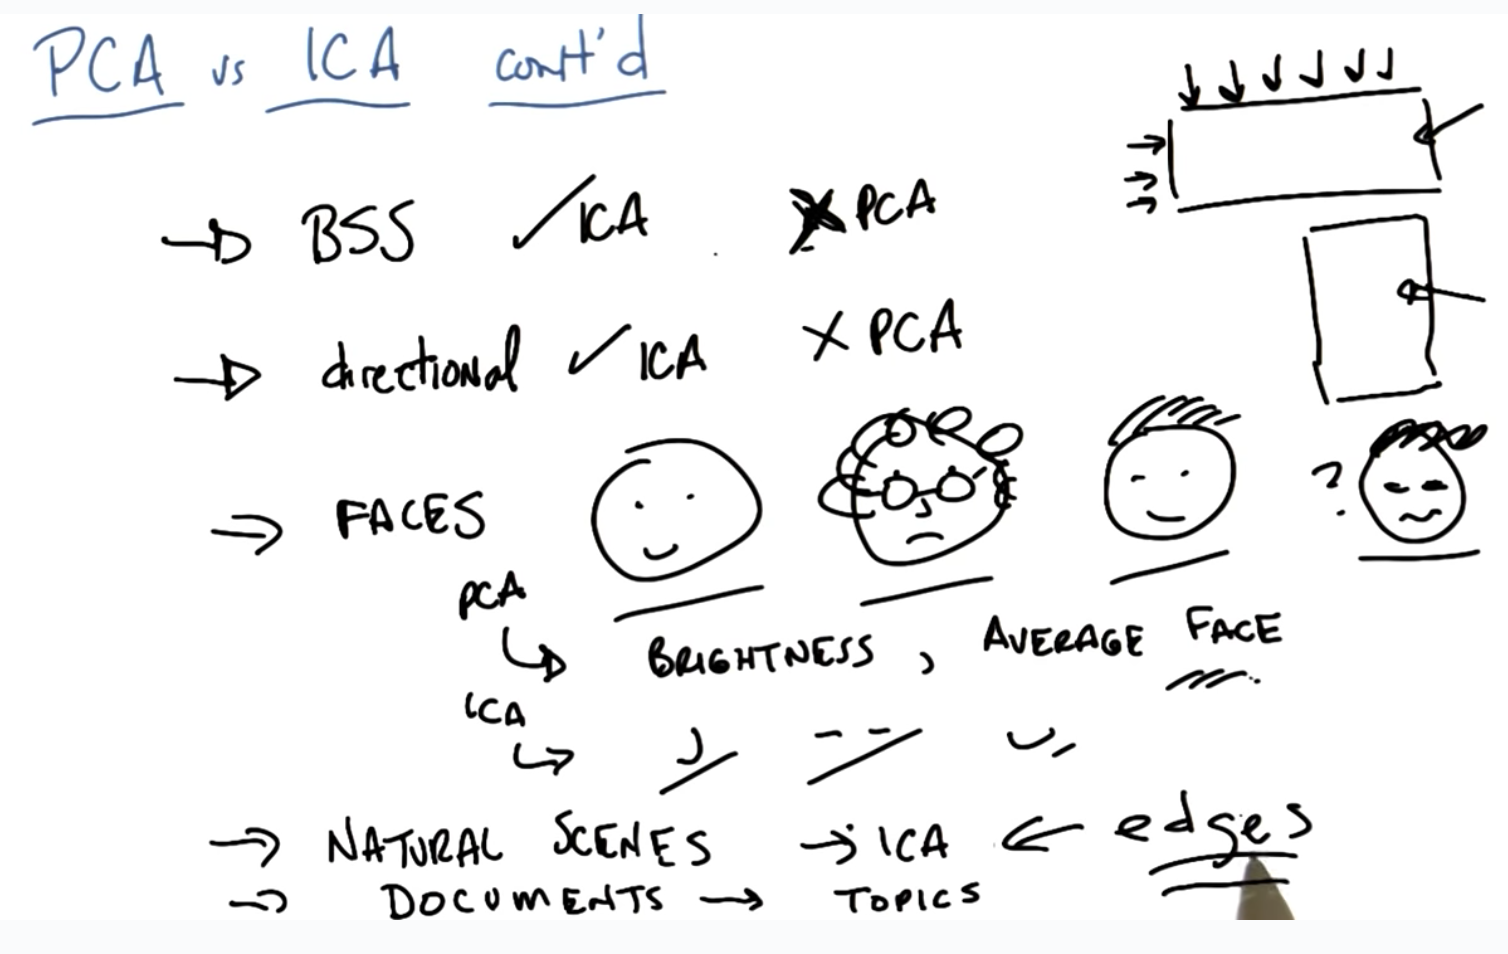 PCA vs ICA cont'd
BSS ✓ ICA X PCA
directional ✓ ICA X PCA
FACES ?
PCA
BRIGHTNESS, AVERAGE FACE
ICA
NATURAL SCENES → ICA ← edges
DOCUMENTS → TOPICS